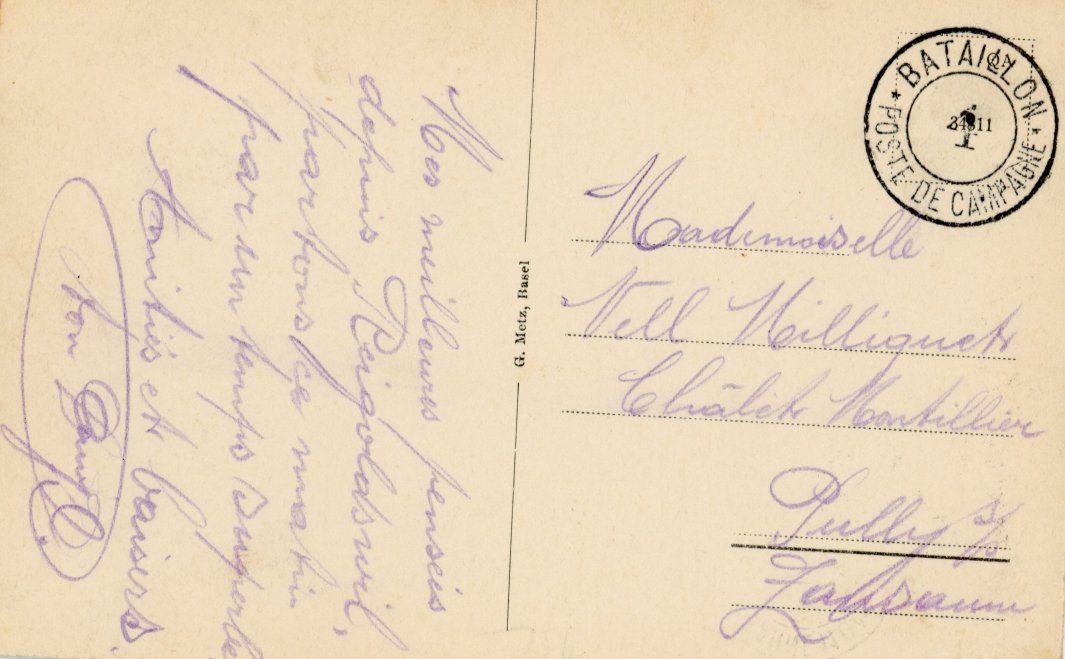 Mes meilleures pensées
depuis Reigoldswil,
partons ce matin
par un temps superbe
Amitiés et baisers.
Ton
G. Metz, Basel
BATAILLON
POSTE DE CAMPAGNE
Mademoiselle
Nell Milliquet
Châlet Montillier
Pully s/
Lausanne